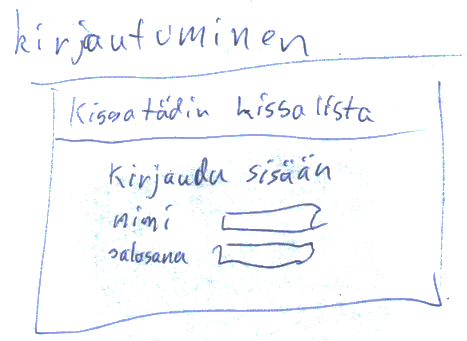 kirjautuminen
Kissatädin kissalista
Kirjaudu sisään
nimi
salasana